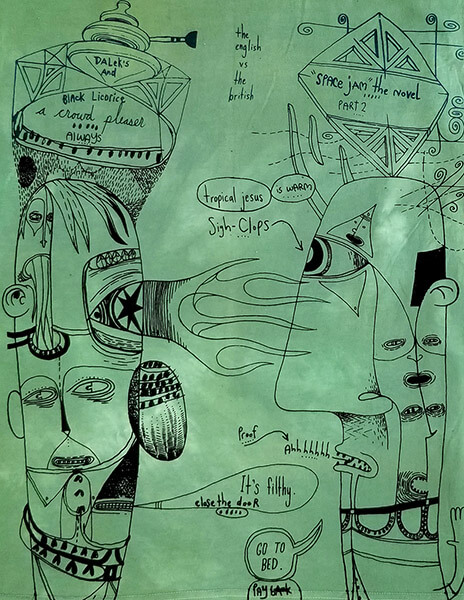 DALEK'S
AND
Black Licorice
a crowd pleaser
ALWAYS
the
english
vs
the
british
"SPACE JAM" the Novel
PART 2
tropical jesus
is WARM
Sigh-Clops
Proof
Ahhhhhhh
It's filthy.
close the dooR
GO TO
BED.
PAY